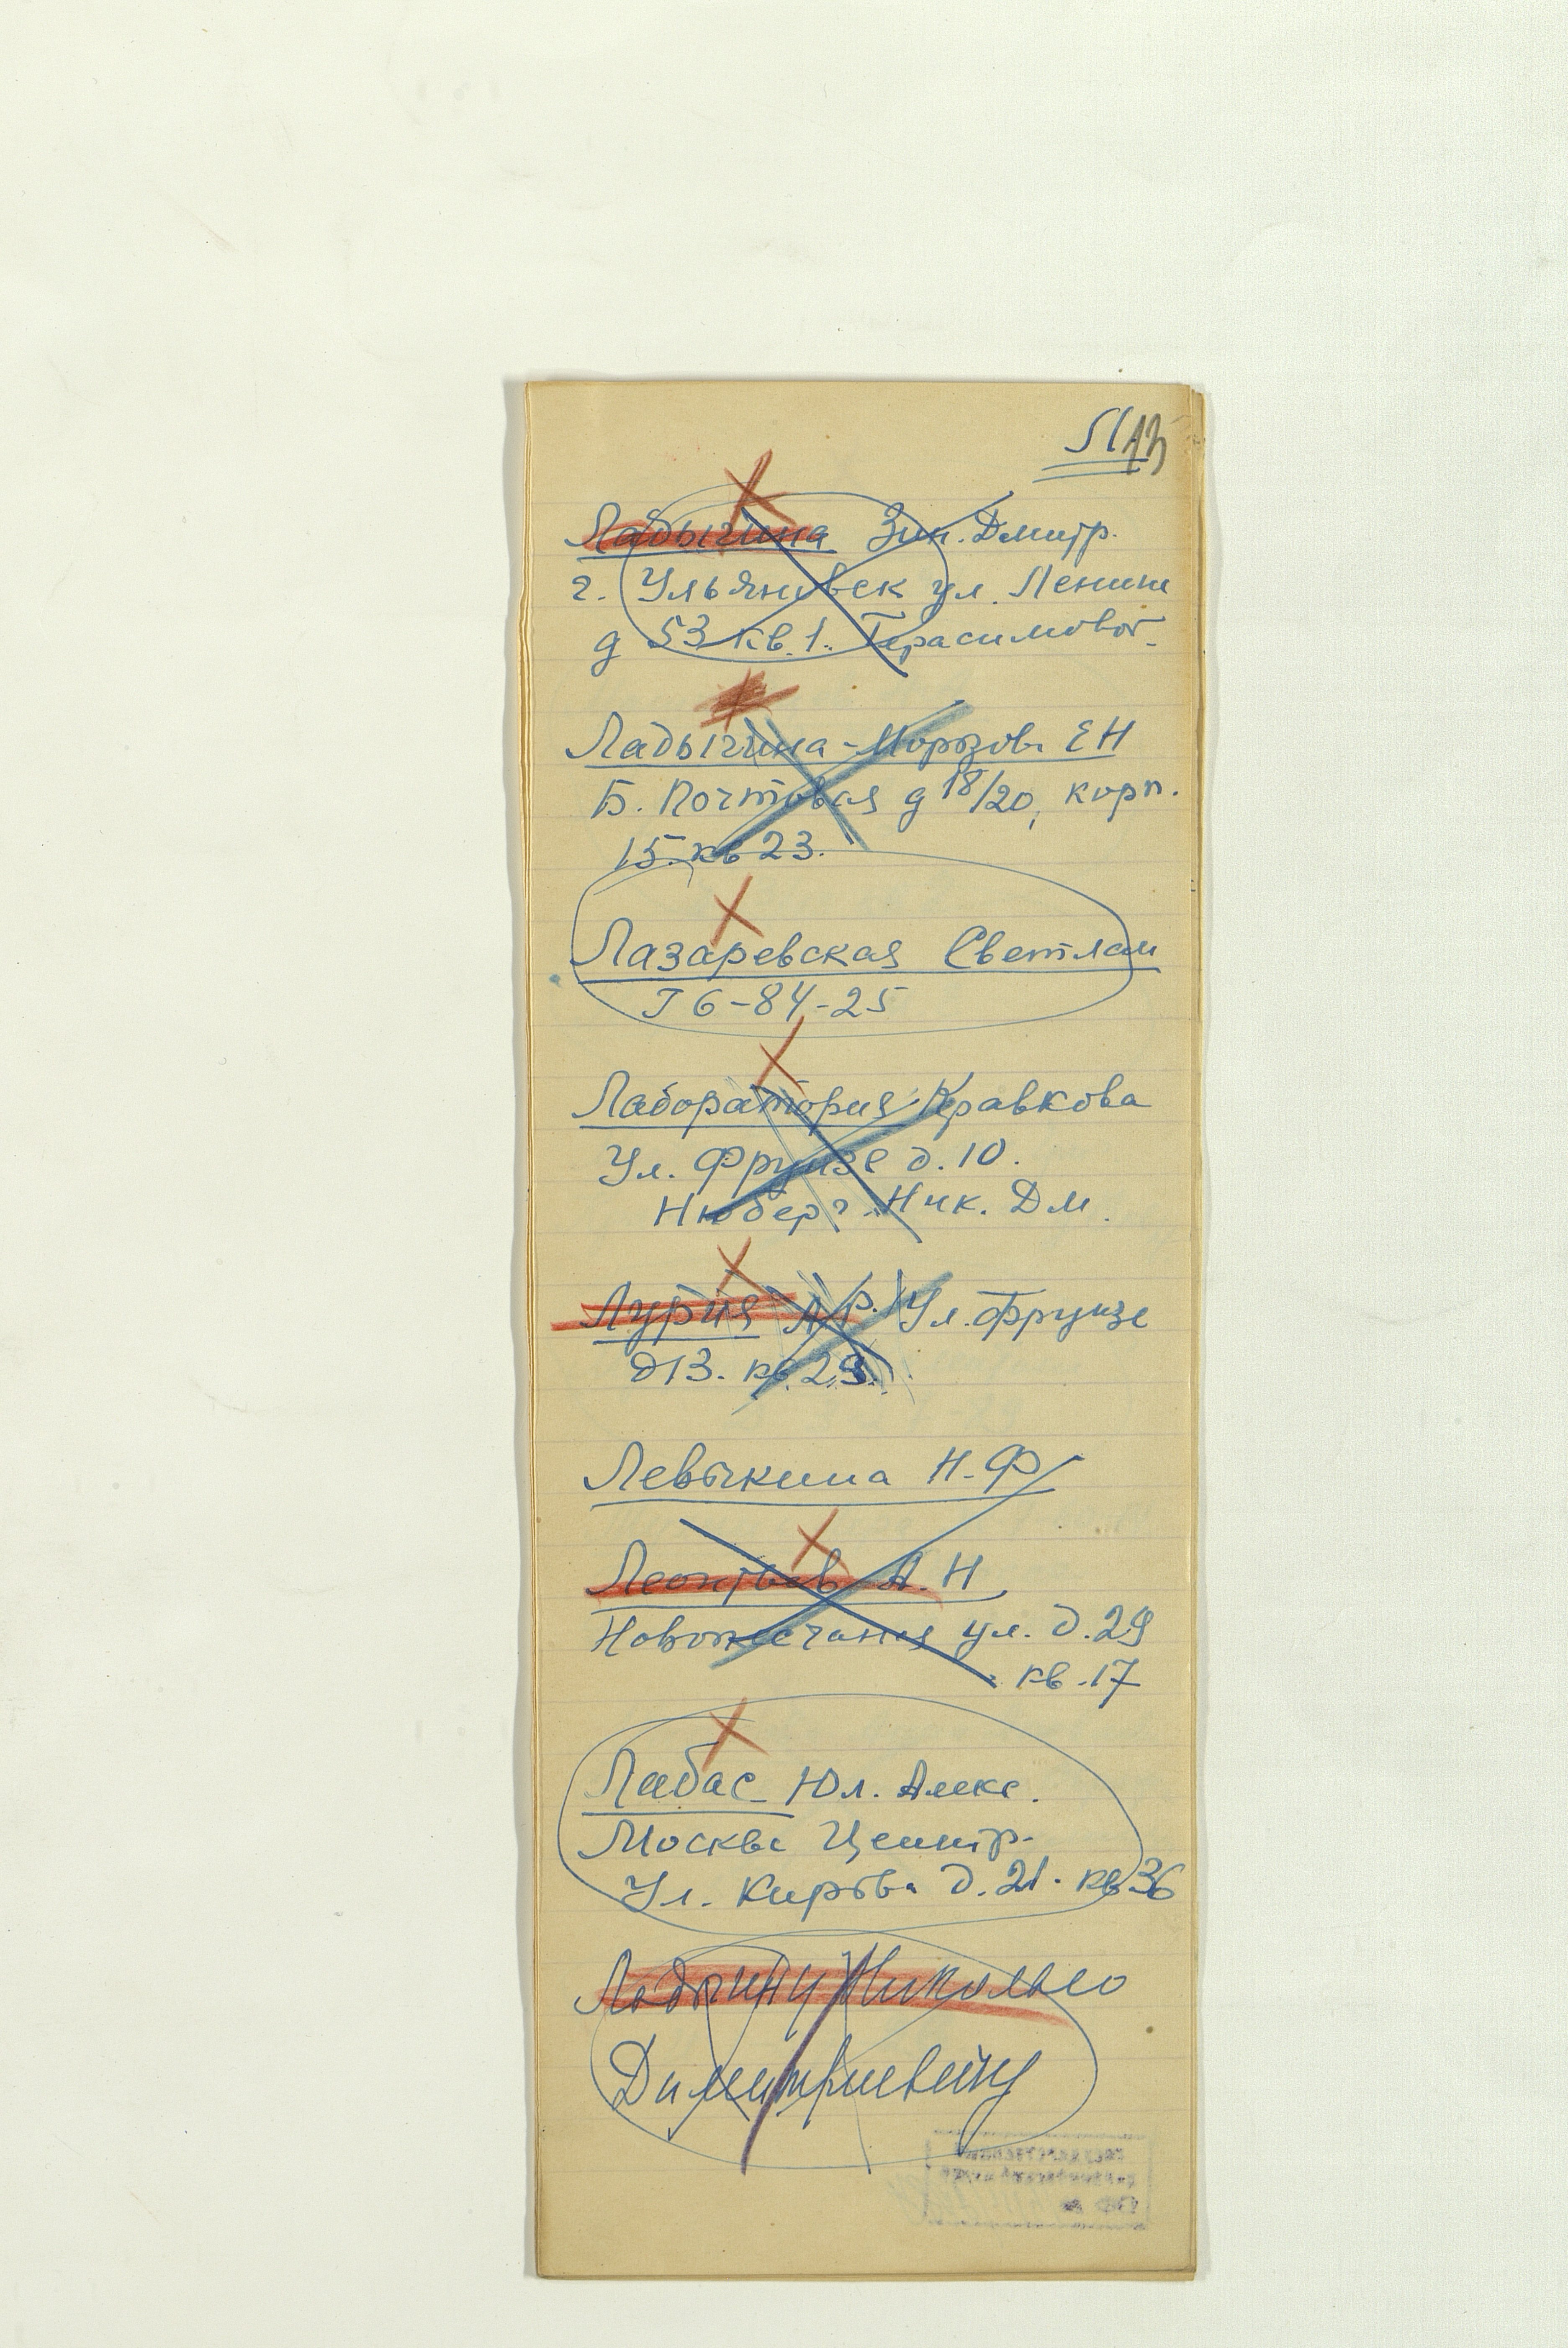 Л 13
Ладыгина Зин. Дмитр.
г. Ульяновск ул. Ленина
д 53 кв. 1. Герасимовой
Ладыгина-Морозова ЕН
Б. Почтовая д 18/20, корп.
15. кв 23.
Лазаревская Светлана
Г 6-84-25
Лаборатория Кравкова
Ул. Фрунзе д. 10.
Нюберг Ник. Дм.
Лурия А.Р. Ул. Фрунзе
д 13. кв. 29.
Левыкина Н.Ф
Леонтьев А.Н
Новопесчаная ул. д. 29
кв. 17
Лабас Юл. Алекс.
Москва Центр.
Ул. Кирова д. 21. кв 36
Ладыгину Николаю
Димитриевичу